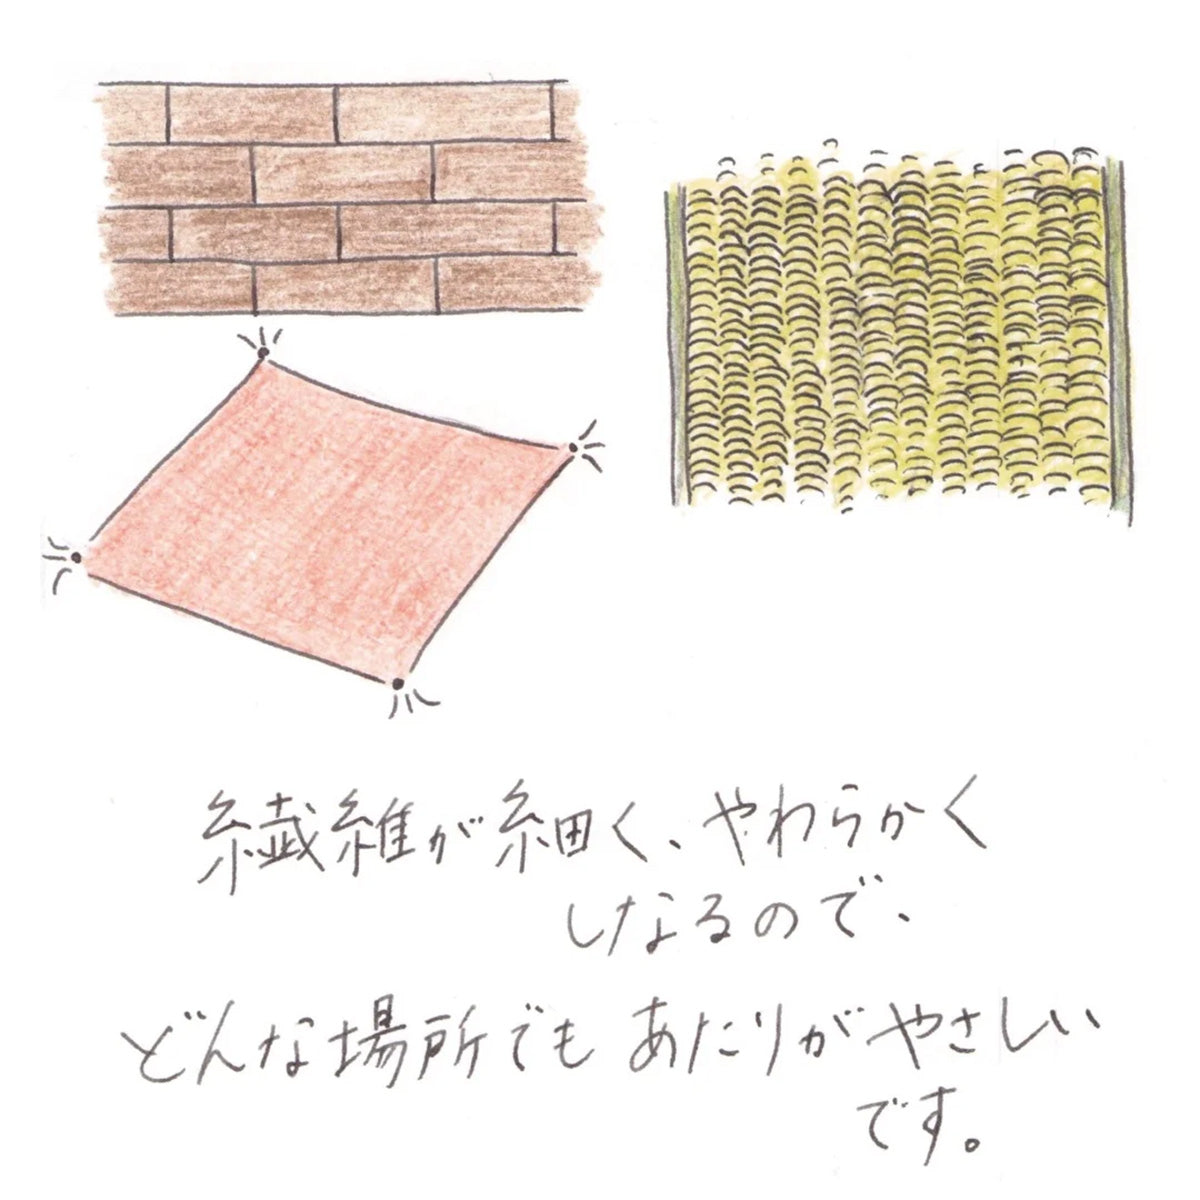 繊維が細く、やわらかく
しなるので、
どんな場所でも あたりがやさしい
です。